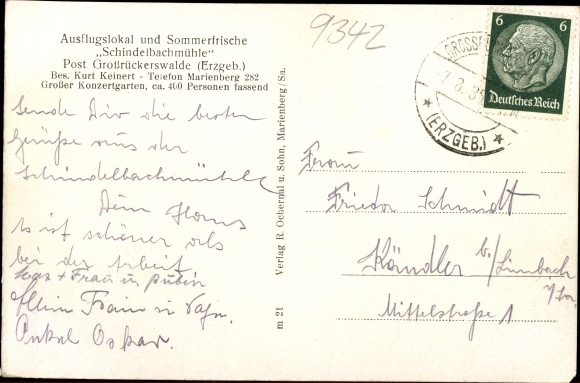 Ausflugslokal und Sommerfrische
„Schindelbachmühle“
Post Großrückerswalde (Erzgeb.)
Bes. Kurt Keinert - Telefon Marienberg 282
Großer Konzertgarten, ca. 400 Personen fassend
9342
Sende Dir die besten
Grüße aus der
Schindelbachmühle
Dein Hans
Es ist schöner als
bei der Arbeit
+ Frau u.
Onkel Oskar.
m 21 Verlag R. Oehermal u. Sohn, Marienberg/Sa.
6 6
Deutsches Reich
(ERZGEB.)
Frau
Frieda Schmidt
Kändler b/Limbach
i/Sa.
Mittelstraße 1